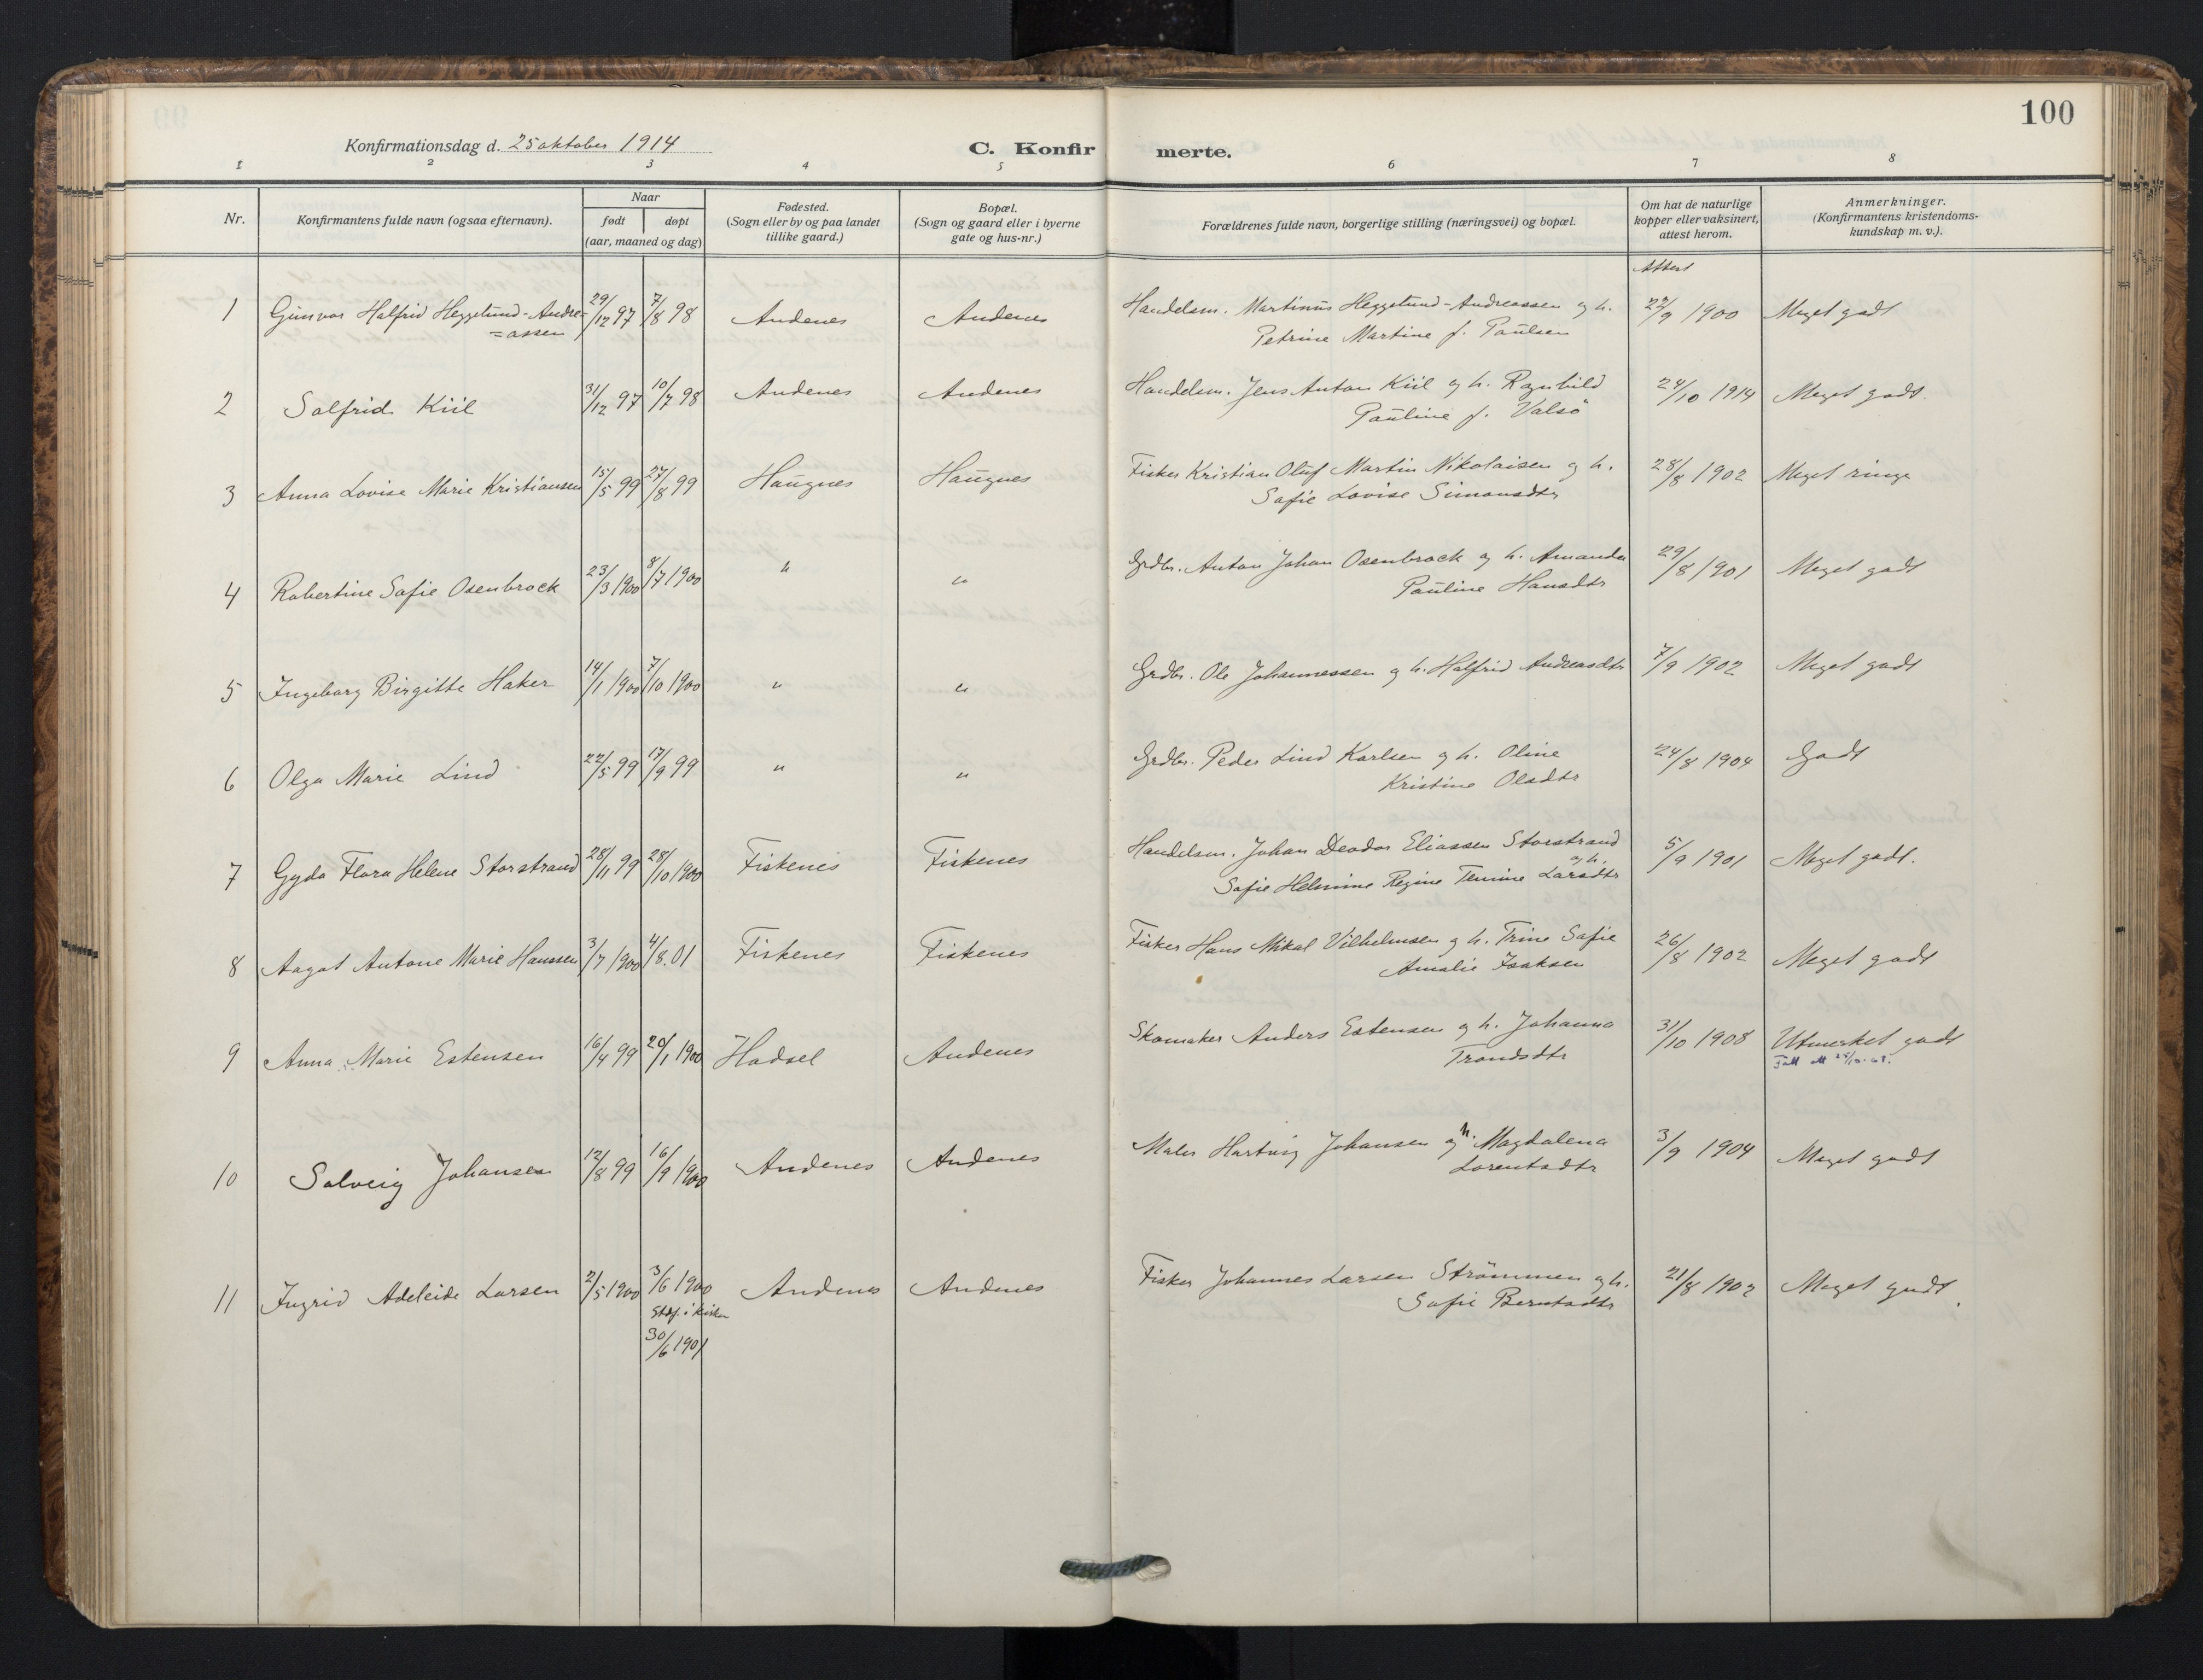 100
Konfirmationsdag d. 25 oktober 1914
C. Konfirmerte.
1 2 3 4 5 6 7 8
Nr.
Konfirmantens fulde navn (ogsaa efternavn).
Naar
født døpt
(aar, maaned og dag)
Fødested.
(Sogn eller by og paa landet
tillike gaard.)
Bopæl.
(Sogn og gaard eller i byerne
gate og hus-nr.)
Forældrenes fulde navn, borgerlige stilling (næringsvei) og bopæl.
Om hat de naturlige
kopper eller vaksinert,
attest herom.
Anmerkninger.
(Konfirmantens kristendoms-
kundskap m. v.).
Attest
1 Gunvor Halfrid Heggelund-Andre= 29/12 97 7/8 98 Andenes Andenes Handelsm. Martinus Heggelund-Andreassen og h. 22/9 1900 Meget godt
=assen Petrine Martine f. Paulsen
2 Solfrid Kiil 31/12 97 10/7 98 Andenes Andenes Handelsm. Jens Anton Kiil og h. Ragnhild 24/10 1914 Meget godt.
Pauline f. Valsö
3 Anna Lovise Marie Kristiansen 15/5 99 27/8 99 Haugnes Haugnes Fisker Kristian Oluf Martin Nikolaisen og h. 28/8 1902 Meget ringe
Sofie Lovise Simonsdtr
4 Robertine Sofie Osenbrock 23/3 1900 8/7 1900 " " Grdbr. Anton Johan Osenbrock og h. Amanda 29/8 1901 Meget godt
Pauline Hansdtr
5 Ingeborg Birgitte Haker 14/1 1900 7/10 1900 " " Grdbr. Ole Johannessen og h. Halfrid Andreasdtr 7/9 1902 Meget godt
6 Olga Marie Lind 22/5 99 17/9 99 " " Grdbr. Peder Lind Karlsen og h. Oline 24/8 1904 Godt
Kristine Olsdtr
7 Gyda Flora Helene Storstrand 28/11 99 28/10 1900 Fiskenes Fiskenes Handelsm. Johan Deodor Eliassen Storstrand 5/9 1901 Meget godt.
og h.
Sofie Helmine Regine Larsdtr
8 Aagot Antone Marie Hanssen 3/7 1900 4/8.01 Fiskenes Fiskenes Fisker Hans Mikal Vilhelmsen og h. Trine Sofie 26/8 1902 Meget godt
Amalie Isaksen
9 Anna Marie Estensen 16/4 99 20/1 1900 Hadsel Andenes Skomaker Anders Estensen og h. Johanna 31/10 1908 Utmerket godt
Trondsdtr
10 Solveig Johansen 12/8 99 16/9 1900 Andenes Andenes Maler Hartvig Johansen og h. Magdalena 3/9 1904 Meget godt
Lorentsdtr
11 Ingrid Adeleide Larsen 2/5 1900 3/6 1900 Andenes Andenes Fisker Johannes Larsen Strömmen og h. 21/8 1902 Meget godt.
Stdf. i kirken Sofie Berntsdtr
30/6 1901